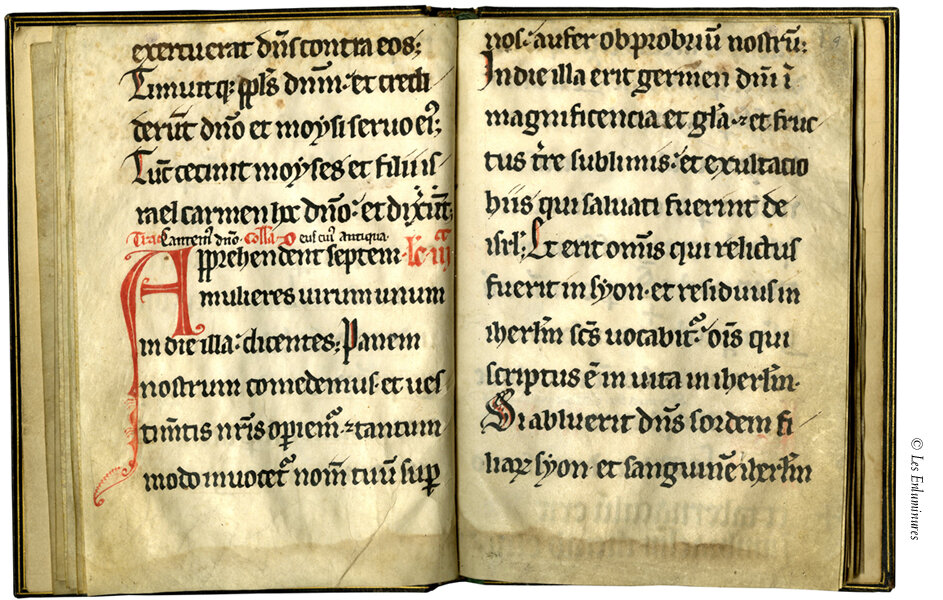 exercuerat dn̄s contra eos;
Timuitq; ppl̄s dnm̄. et credi
derūt dn̄o et moysi seruo ei᷒;
Tūc cecinit moyses et filii is
rael carmen hoc dn̄o. et dixert̄;
Trac Cantem᷒ dn̄o. Coll̄a Ds̄ cui᷒ antiqua.
Apprehendent septem. lc̄. iii
mulieres uirum unum
in die illa: dicentes; Panem
nostrum comedemus. et ues
tim̄tis nr̄is op̄iem᷒. ⁊ tantum
modo inuocet᷒ nom̄ tuū sup̄
nos. aufer obprobriū nostrū;
In die illa erit germen dn̄i ī
magnificencia et gl̄a. ⁊ et fruc
tus t̄re sublimis. et exultacio
hiis qui saluati fuerint de
isrl̄; Et erit omn̄is qui relictus
fuerit in syon. et residuus in
iherl̄m sc̄s uocabit᷒. om̄is qui
scriptus ē in uita in iherl̄m.
Si abluerit dn̄s sordem fi
liaꝝ syon et sanguinē iherl̄m
9
© Les Enluminures